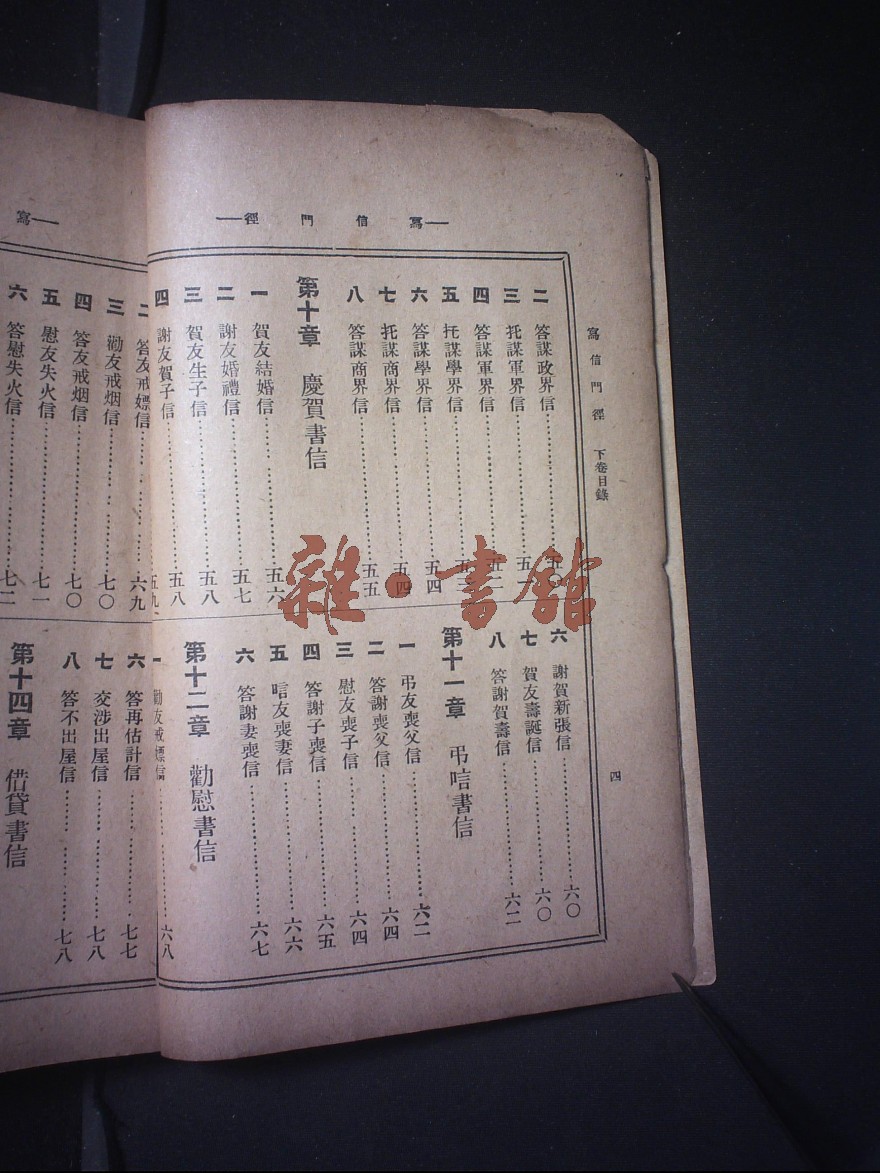 寫信門徑
寫信門徑 下卷目錄
四
二 答謀政界信
三 托謀軍界信
四 答謀軍界信
五 托謀學界信
六 答謀學界信 五四
七 托謀商界信 五四
八 答謀商界信 五五
第十章 慶賀書信
一 賀友結婚信 五六
二 謝友婚禮信 五七
三 賀友生子信 五八
四 謝友賀子信 五八
五九
六 謝賀新張信 六〇
七 賀友壽誕信 六〇
八 答謝賀壽信 六二
第十一章 弔唁書信
一 弔友喪父信 六二
二 答謝喪父信 六四
三 慰友喪子信 六四
四 答謝子喪信 六五
五 唁友喪妻信 六六
六 答謝妻喪信 六七
第十二章 勸慰書信
一 勸友戒嫖信 六八
寫
二 答友戒嫖信 六九
三 勸友戒烟信 七〇
四 答友戒烟信 七〇
五 慰友失火信 七一
六 答慰失火信 七二
六 答再估計信 七七
七 交涉出屋信 七八
八 答不出屋信 七八
第十四章 借貸書信
雜·書館